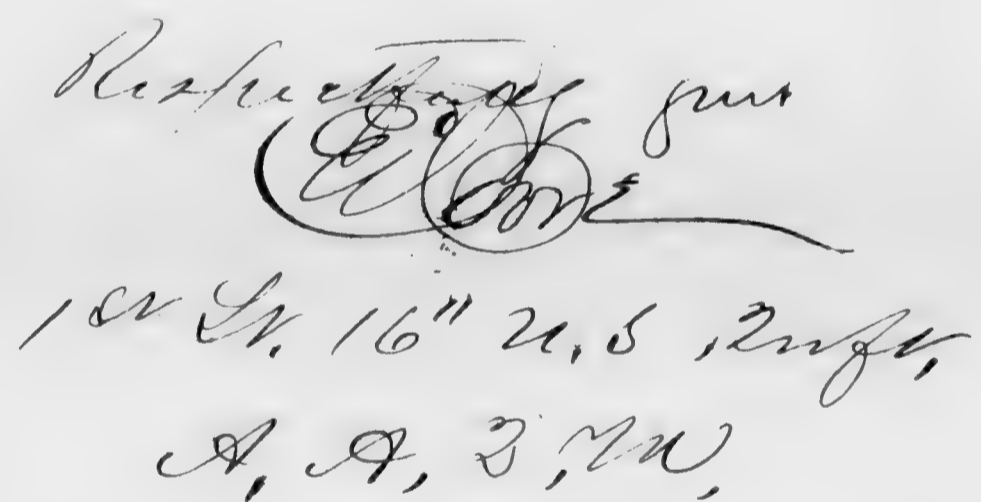 Respectfully your
1st Lt. 16" U.S. Inft,
A, A, Q, M,